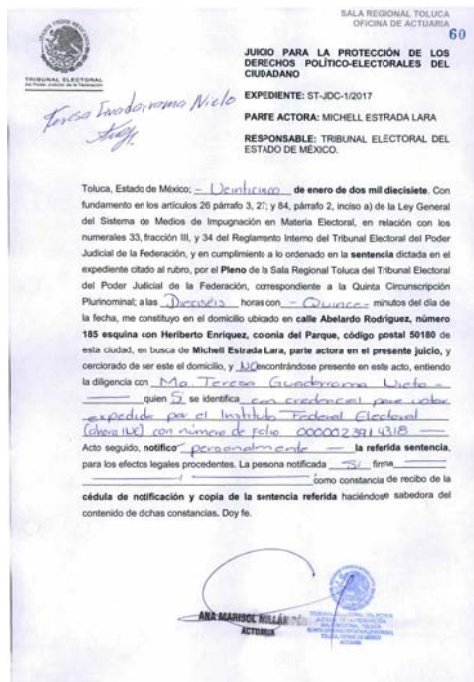 SALA REGIONAL TOLUCA
OFICINA DE ACTUARIA
60
TRIBUNAL ELECTORAL
del Poder Judicial de la Federación
JUICIO PARA LA PROTECCIÓN DE LOS
DERECHOS POLÍTICO-ELECTORALES DEL
CIUDADANO
EXPEDIENTE: ST-JDC-1/2017
PARTE ACTORA: MICHELL ESTRADA LARA
RESPONSABLE: TRIBUNAL ELECTORAL DEL
ESTADO DE MÉXICO.
Teresa Nieto
Toluca, Estado de México; – Veinticinco de enero de dos mil diecisiete. Con
fundamento en los artículos 26 párrafo 3, 27; y 84, párrafo 2, inciso a) de la Ley General
del Sistema de Medios de Impugnación en Materia Electoral, en relación con los
numerales 33, fracción III, y 34 del Reglamento Interno del Tribunal Electoral del Poder
Judicial de la Federación, y en cumplimiento a lo ordenado en la sentencia dictada en el
expediente citado al rubro, por el Pleno de la Sala Regional Toluca del Tribunal Electoral
del Poder Judicial de la Federación, correspondiente a la Quinta Circunscripción
Plurinominal; a las Dieciséis horas con – Quince – minutos del día de
la fecha, me constituyo en el domicilio ubicado en calle Abelardo Rodríguez, número
185 esquina con Heriberto Enríquez, coonia del Parque, código postal 50180 de
esta ciudad, en busca de Michell Estrada Lara, parte actora en el presente juicio, y
cerciorado de ser este el domicilio, y NO encontrándose presente en este acto, entiendo
la diligencia con Ma. Teresa Guadarrama Nieto –
quien Sí se identifica con credencial para votar
expedida por el Instituto Federal Electoral
(ahora INE) con número de folio 0000023914318
Acto seguido, notifico personalmente — la referida sentencia,
para los efectos legales procedentes. La pesona notificada Sí firma
como constancia de recibo de la
cédula de notificación y copia de la sentencia referida haciéndose sabedora del
contenido de dchas constancias. Doy fe.
ANA MARISOL MILLÁN
ACTUARIA